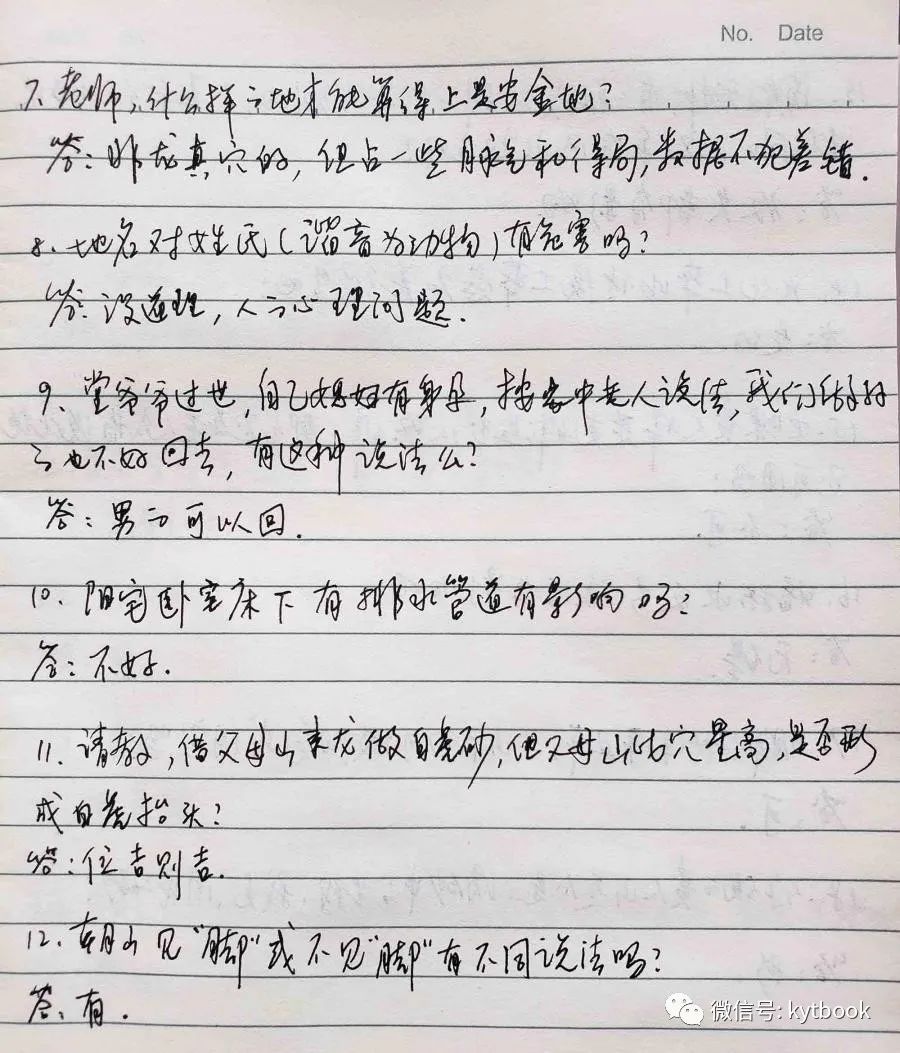 No. Date
7. 老师,什么样之地才能算得上是安金地?
答:非龙真穴的,但占一些脉气和得局,数据不犯差错.
8. 地名对姓氏(谐音为动物)有危害吗?
答:没道理,人之心理问题.
9、堂爷爷过世,自己媳妇有身孕,按家中老人说法,我们做好
之也不好回去,有这种说法么?
答:男方可以回.
10. 阳宅卧室床下有排水管道有影响吗?
答:不好.
11. 请教,借父母山来龙做白虎砂,但父母山比穴星高,是否形
成白虎抬头?
答:位吉则吉.
12. 朝山见"脚"或不见"脚"有不同说法吗?
答:有.
微信号: kytbook